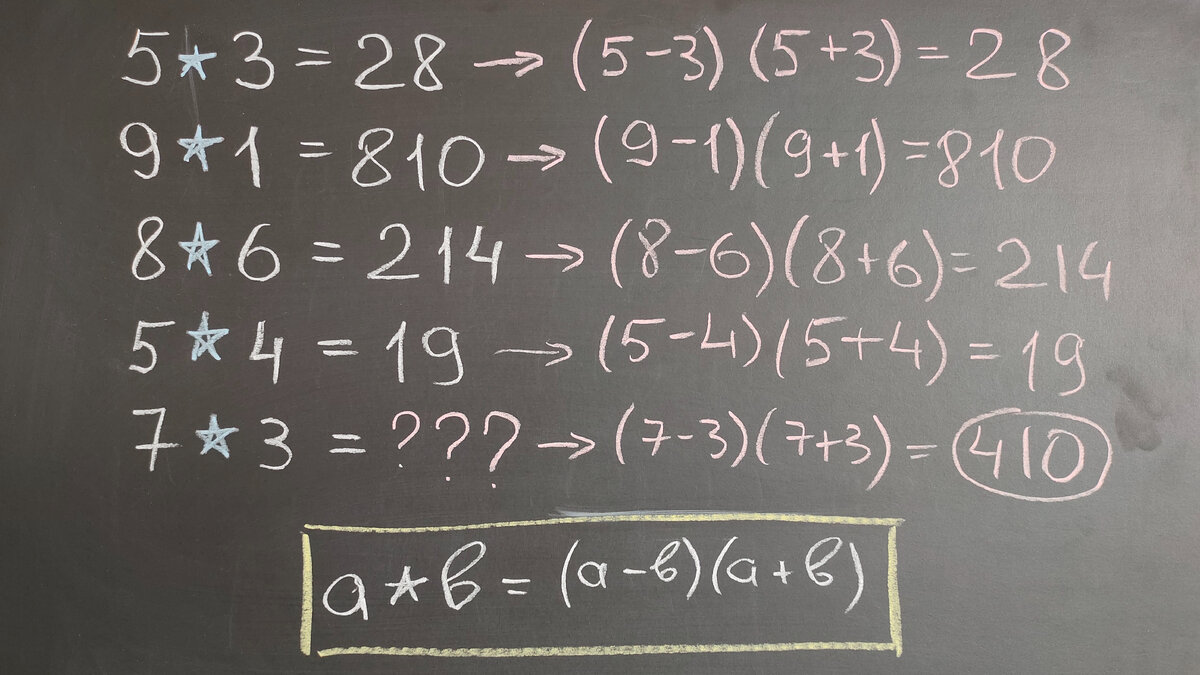 5 ☆ 3 = 28 → (5-3) (5+3) = 28
9 ☆ 1 = 810 → (9-1)(9+1) = 810
8 ☆ 6 = 214 → (8-6)(8+6) = 214
5 ☆ 4 = 19 → (5-4)(5+4) = 19
7 ☆ 3 = ??? → (7-3)(7+3) = 410
а ☆ в = (а-в)(а+в)